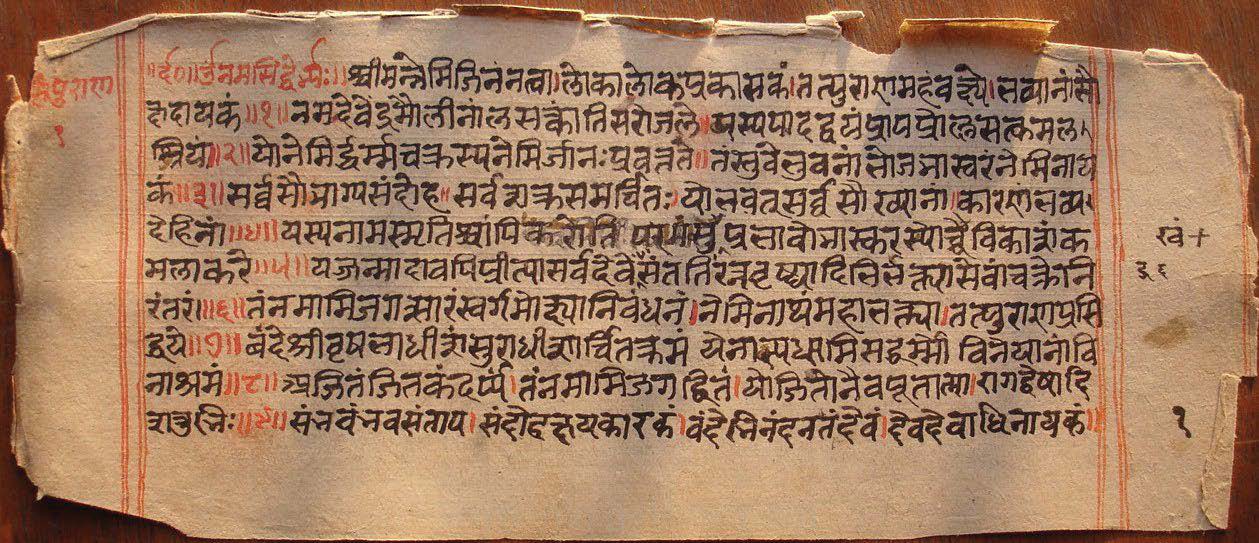 हरिपुराण
१
॥र्द०॥ र्उनमसिद्धेर्भ्यः॥ श्रीमन्नेमिजिनं नत्वा॥ लोकालोकप्रकासकं। तत्पुराणमहं वक्ष्ये। भव्यानां सौ
ख्यदायकं॥१॥ नमद्देवेंद्रमौलीनां लसत्कांतिसरोजले॥ यस्य पादद्वयं प्राप प्रोल्लसत्कमल
श्रियं॥२॥ यो नेमिर्द्धर्म्मचक्रस्य नेमिर्जानः प्रवर्त्तते॥ तं स्तुवे भुवनांभोजभास्वरं नेमिनाय
कं॥३॥ सर्व्वसौभाग्यसंदोह॥ सर्वशक्रसमर्चितः। योभवत्सर्व्वसौख्यानां। कारणं भव्य
देहिनां॥४॥ यस्य नामस्मृतिश्चापि करोति परमां प्रभावो भास्करस्योच्चै विकाशं क
मलाकरे॥५॥ यजन्मादावपि प्रीत्या सर्वदेवै संततिं रत्नवृष्ट्यादिभिर्भक्त्या सेवां चक्रे नि
रंतरं॥६॥ तं नमामि जगत्सारं स्वर्गमोक्ष्यानिबंधनं। नेमिनाथं महाभक्त्या। तत्पुराणप्रसि
द्धये॥७॥ बंदे श्रीवृषभाधीशं सुराधीशार्चितक्रमं येनात्र सद्धर्म्मो विनेयानां वि
नाश्रमं॥८॥ अजितं जितकंदर्प्प। तं नमामि जगद्धितं। यो जितो नैव पूतात्मा। रागद्वेषादि
शत्रुभिः॥९॥ संभवं भवसंताप। संदोहक्षयकारकं। वंदेभिनंदनं तं देवं। देवदेवाधिनायकं॥
खं+
३६
१